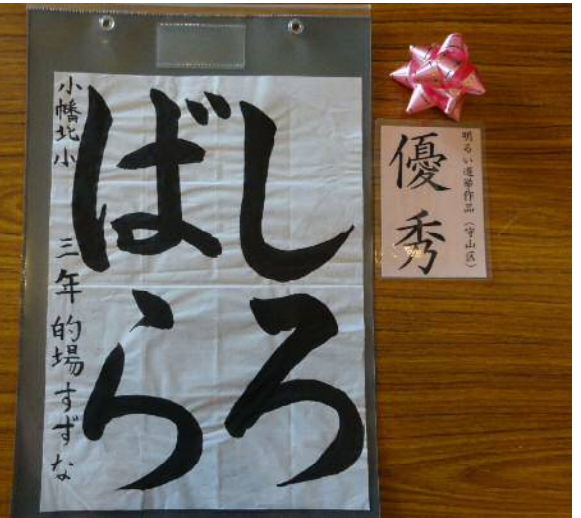 しろ
ばら
小幡北小 三年 的場すずな
明るい選挙作品(守山区)
優秀